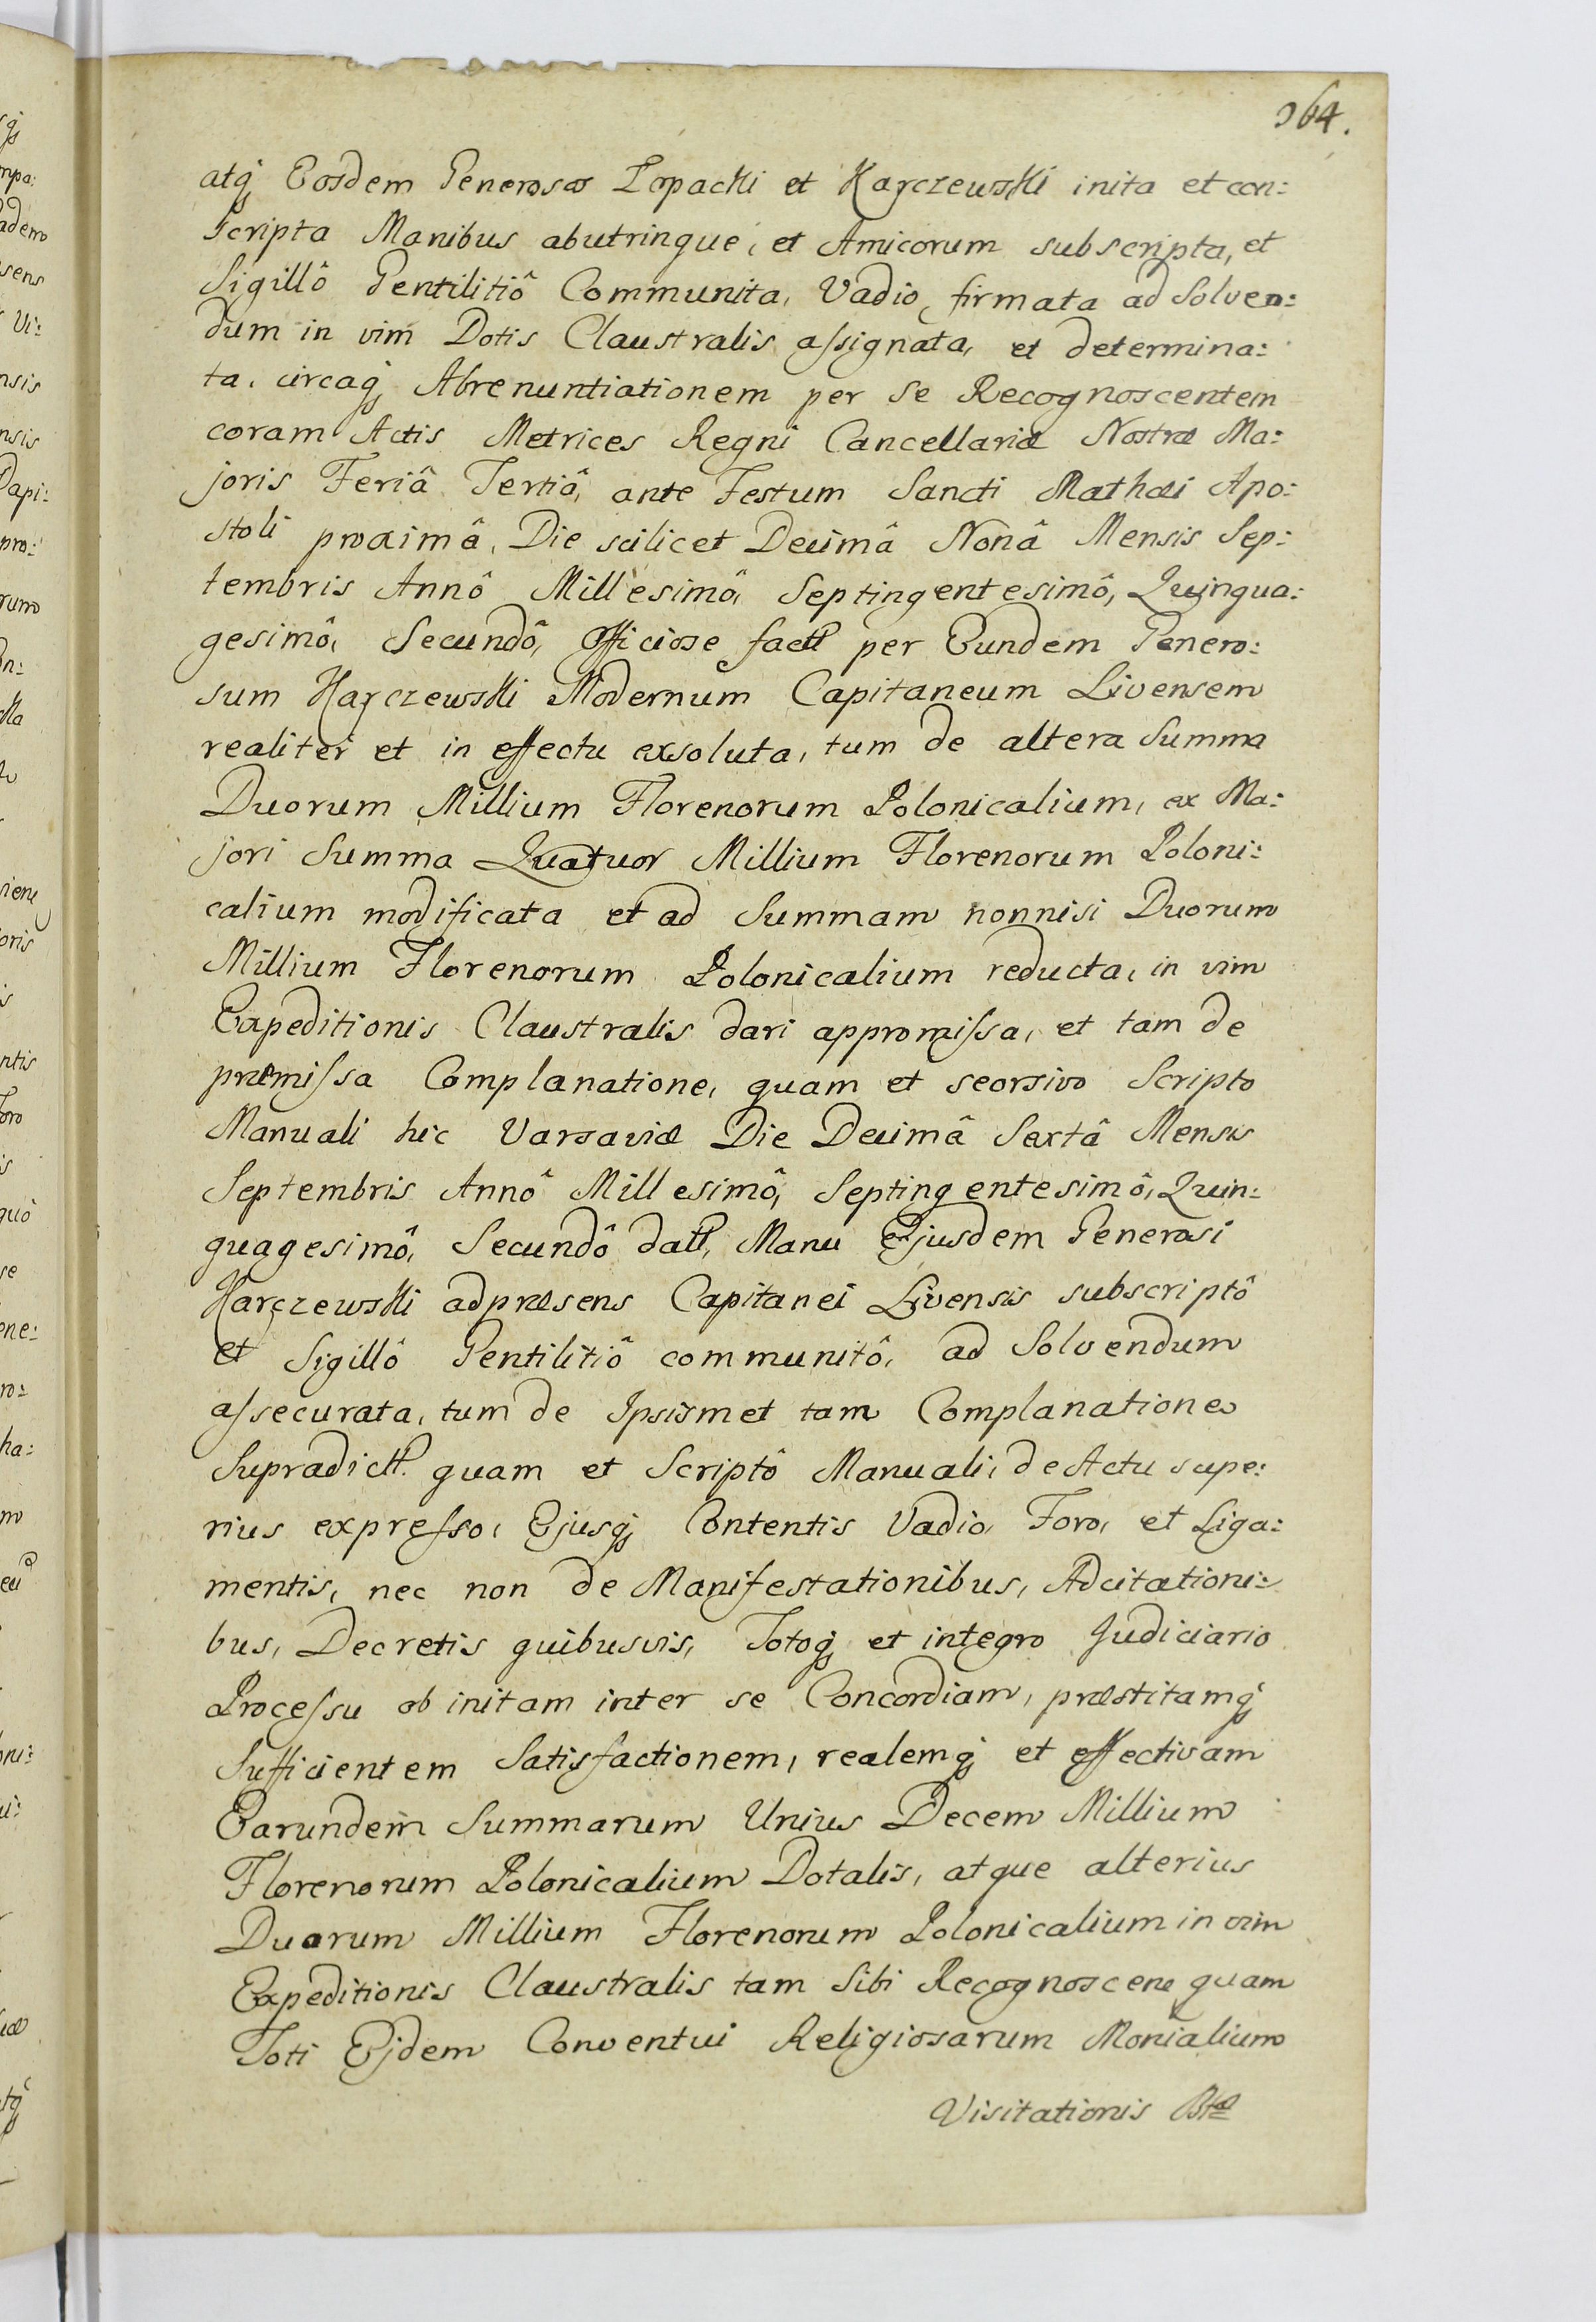 364.
atq́ Eosdem Generosos Łopacki et Karczewski inita et con:
scripta Manibus abutrinque, et Amicorum subscripta, et
Sigillô Gentilitiô Communita, Vadio, firmata ad Solven:
dum in vim Dotis Claustralis aſsignata, et determina:
ta, circaq́ Abrenuntiationem per se Recognoscentem
coram Actis Metrices Regni Cancellariæ Nostræ Ma:
joris Feriâ Tertiâ, ante Festum Sancti Mathæi Apo:
stoli proximâ, Die scilicet Decimâ Nonâ Mensis Sep:
tembris Annô Millesimô, Septingentesimô, Quinqua:
gesimô, Secundô, Officiose factt per Eundem Genero:
sum Karczewski Modernum Capitaneum Livensem
realiter et in effectu exsoluta, tum de altera Summa
Duorum Millium Florenorum Polonicalium, ex Ma:
jori Summa Quatuor Millium Florenorum Poloni:
calium modificata et ad Summam nonnisi Duorum
Millium Florenorum Polonicalium reducta, in vim
Expeditionis Claustralis dari appromiſsa, et tam de
præmiſsa Complanatione, quam et seorsivo Scripto
Manuali hic Varsaviæ Die Decimâ Sextâ Mensis
Septembris Annô Millesimô, Septingentesimô, Quin:
quagesimô, Secundô datt, Manu Ejusdem Generosi
Karczewski adpræsens Capitanei Livensis subscriptô
et Sigillô Gentilitiô communitô, ad Solvendum
aſsecurata, tum de Ipsismet tam Complanatione
Supradictt. quam et Scriptô Manuali, de Actu supe:
rius expreſso, Ejusq́ Contentis Vadio, Foro, et Liga:
mentis, nec non de Manifestationibus, Adcitationi:
bus, Decretis quibusvis, Totoq́ et integro Judiciario
Proceſsu ob initam inter se Concordiam, præstitamq́
Sufficientem Satisfactionem, realemq́ et effectivam
Earundem Summarum Unius Decem Millium
Florenorum Polonicalium Dotalis, atque alterius
Duorum Millium Florenorum Polonicalium in vim
Expeditionis Claustralis tam Sibi Recognoscen quam
Toti Ejdem Conventui Religiosarum Monialium
Visitationis Btæ